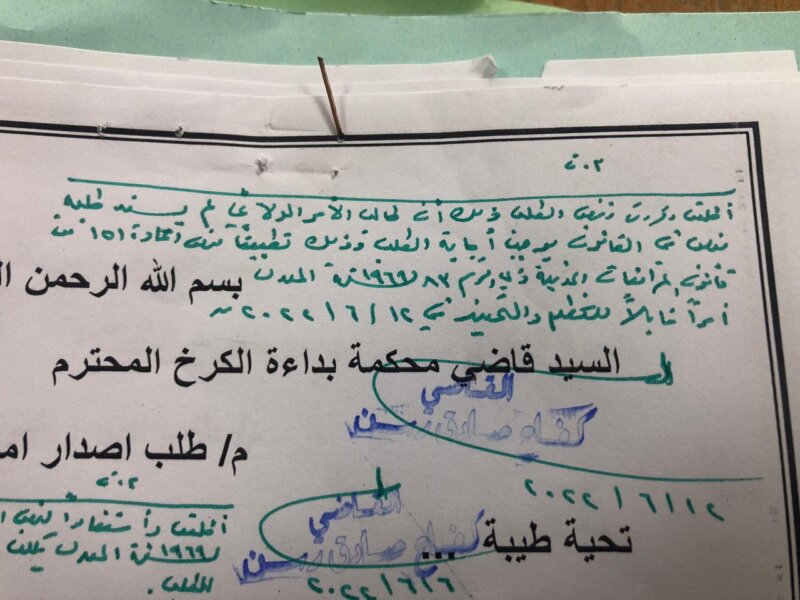 اطلعت وقررت رفض الطلب وذلك أن طالب الأمر الولائي لم يسند طلبه
في القانون يوجب إجابة الطلب وذلك تطبيقاً لنص المادة ١٥١ من
قانون المرافعات المدنية ذي الرقم ٨٣ لسنة ١٩٦٩ المعدل
أمراً قابلاً للتظلم والتمييز في ١٢ / ٦ / ٢٠٢٢
بسم الله الرحمن
السيد قاضي محكمة بداءة الكرخ المحترم
القاضي
كفاح صادق
م/ طلب اصدار
٢٠٢٢ / ٦ / ١٢
تحية طيبة ...
اطلعت
لسنة ١٩٦٩ المعدل
القاضي
كفاح صادق
الطلب.
٢٠٢٢ / ٦ / ٦